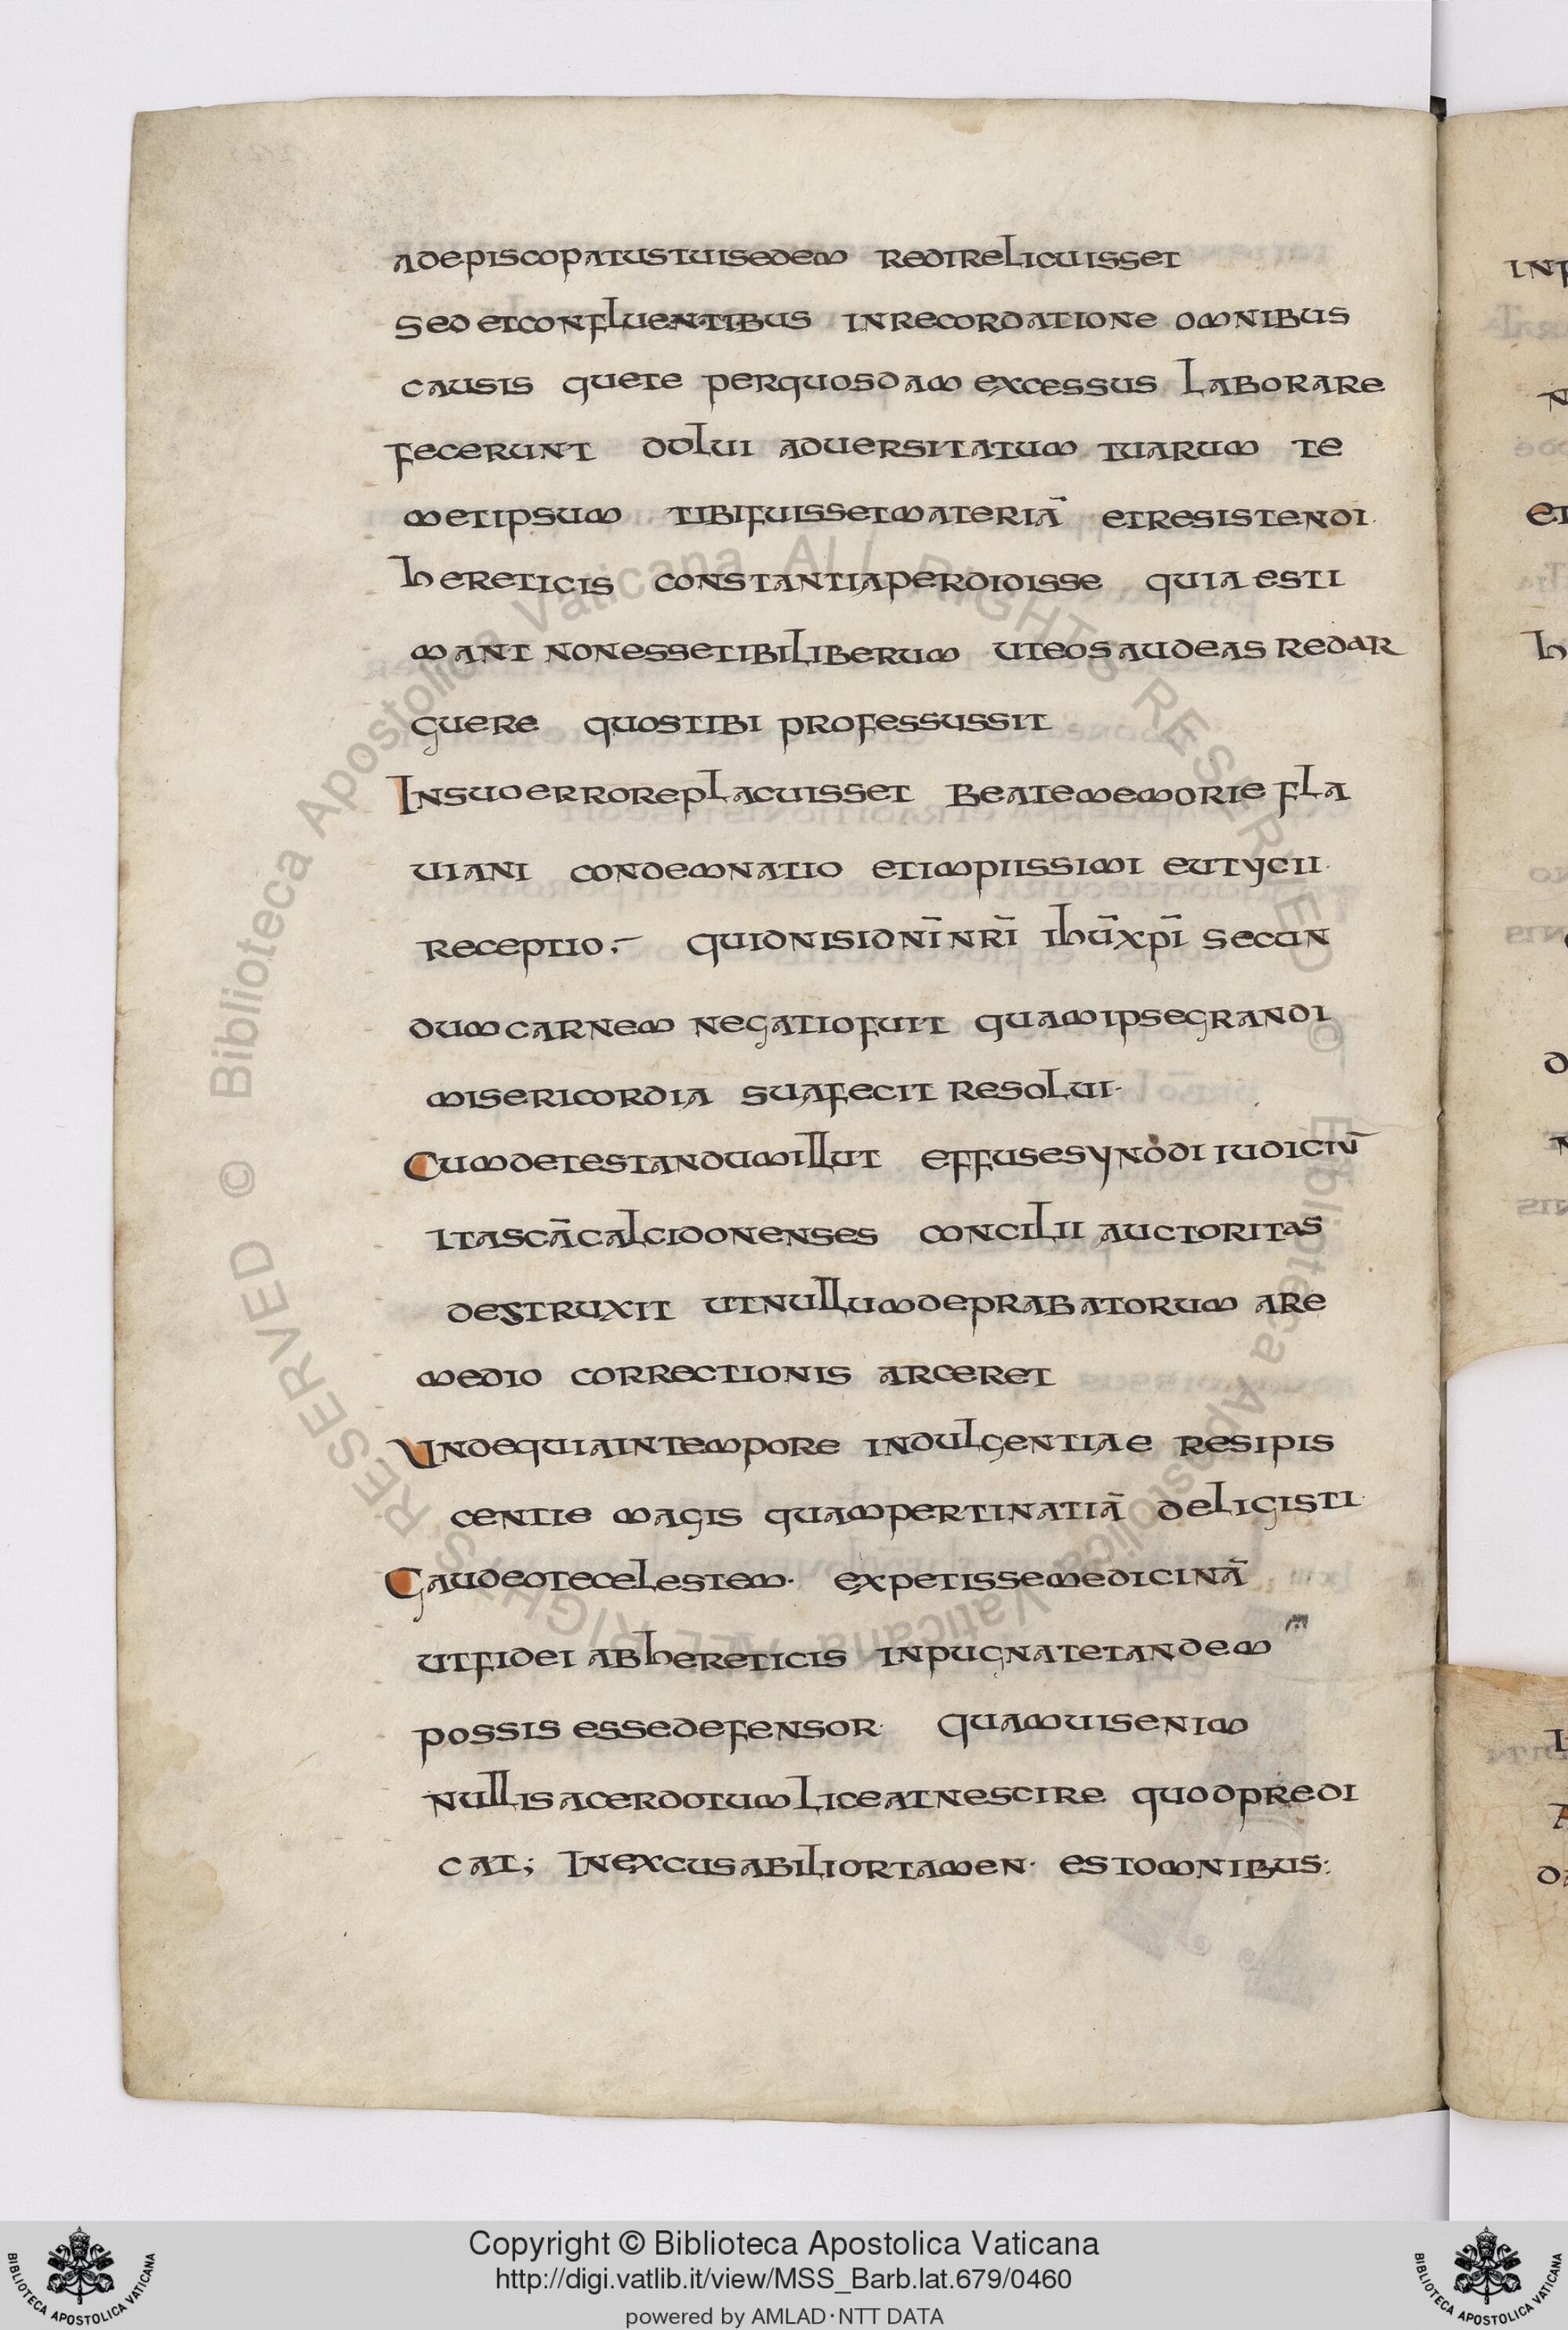 adepiscopatustuisedem redirelicuisset
sed etconfluentibus inrecordatione omnibus
causis quete perquosdam excessus laborare
fecerunt dolui aduersitatum tuarum te
metipsum tibifuissetmateriā etresistendi·
hereticis constantiaperdidisse quia esti
mant nonessetibiliberum uteos audeas redar
guere quostibi professussit
Insuoerroreplacuisset beatememorie fla
uiani condemnatio etimpiissimi eutycii·
receptio;– quidnisidnīnrī ihūxpī secun
dumcarnem negatiofuit quamipsegrandi
misericordia suafecit resolui·
Cumdetestandumillut effusesynodi iudiciū
Itascācalcidonenses concilii auctoritas
destruxit utnullumdeprabatorum are
medio correctionis arceret
Undequiaintempore indulgentiae resipis
centie magis quampertinatiā deligisti·
Gaudeotecelestem· expetissemedicinā
utfidei abhereticis inpugnatetandem
possis essedefensor· quamuisenim
nullisacerdotumliceatnescire quodpredi
cat; Inexcusabiliortamen· estomnibus:
Copyright © Biblioteca Apostolica Vaticana
http://digi.vatlib.it/view/MSS_Barb.lat.679/0460
powered by AMLAD·NTT DATA
BIBLIOTECA APOSTOLICA VATICANA
BIBLIOTECA APOSTOLICA VATICANA